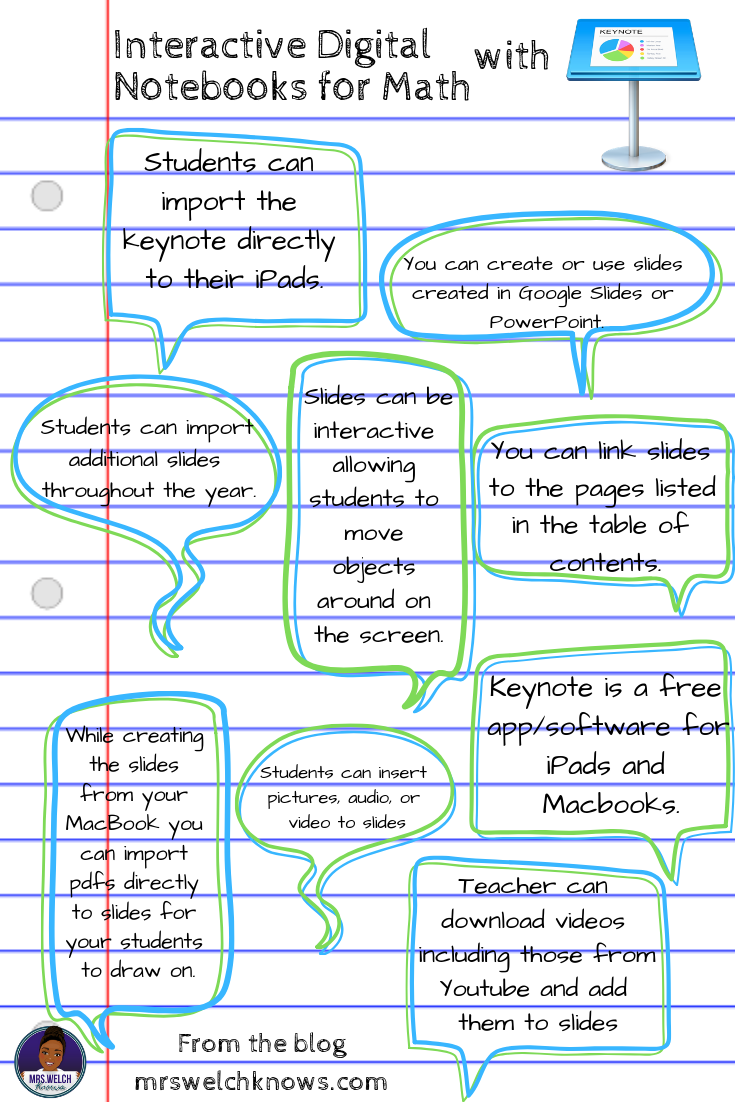 Interactive Digital
Notebooks for Math
with
KEYNOTE
Students can
import the
keynote directly
to their iPads.
You can create or use slides
created in Google Slides or
PowerPoint.
Students can import
additional slides
throughout the year.
Slides can be
interactive
allowing
students to
move
objects
around on
the screen.
You can link slides
to the pages listed
in the table of
contents.
Keynote is a free
app/software for
iPads and
Macbooks.
While creating
the slides
from your
MacBook you
can import
pdfs directly
to slides for
your students
to draw on.
Students can insert
pictures, audio, or
video to slides
Teacher can
download videos
including those from
Youtube and add
them to slides
From the blog
mrswelchknows.com
MRS.WELCH